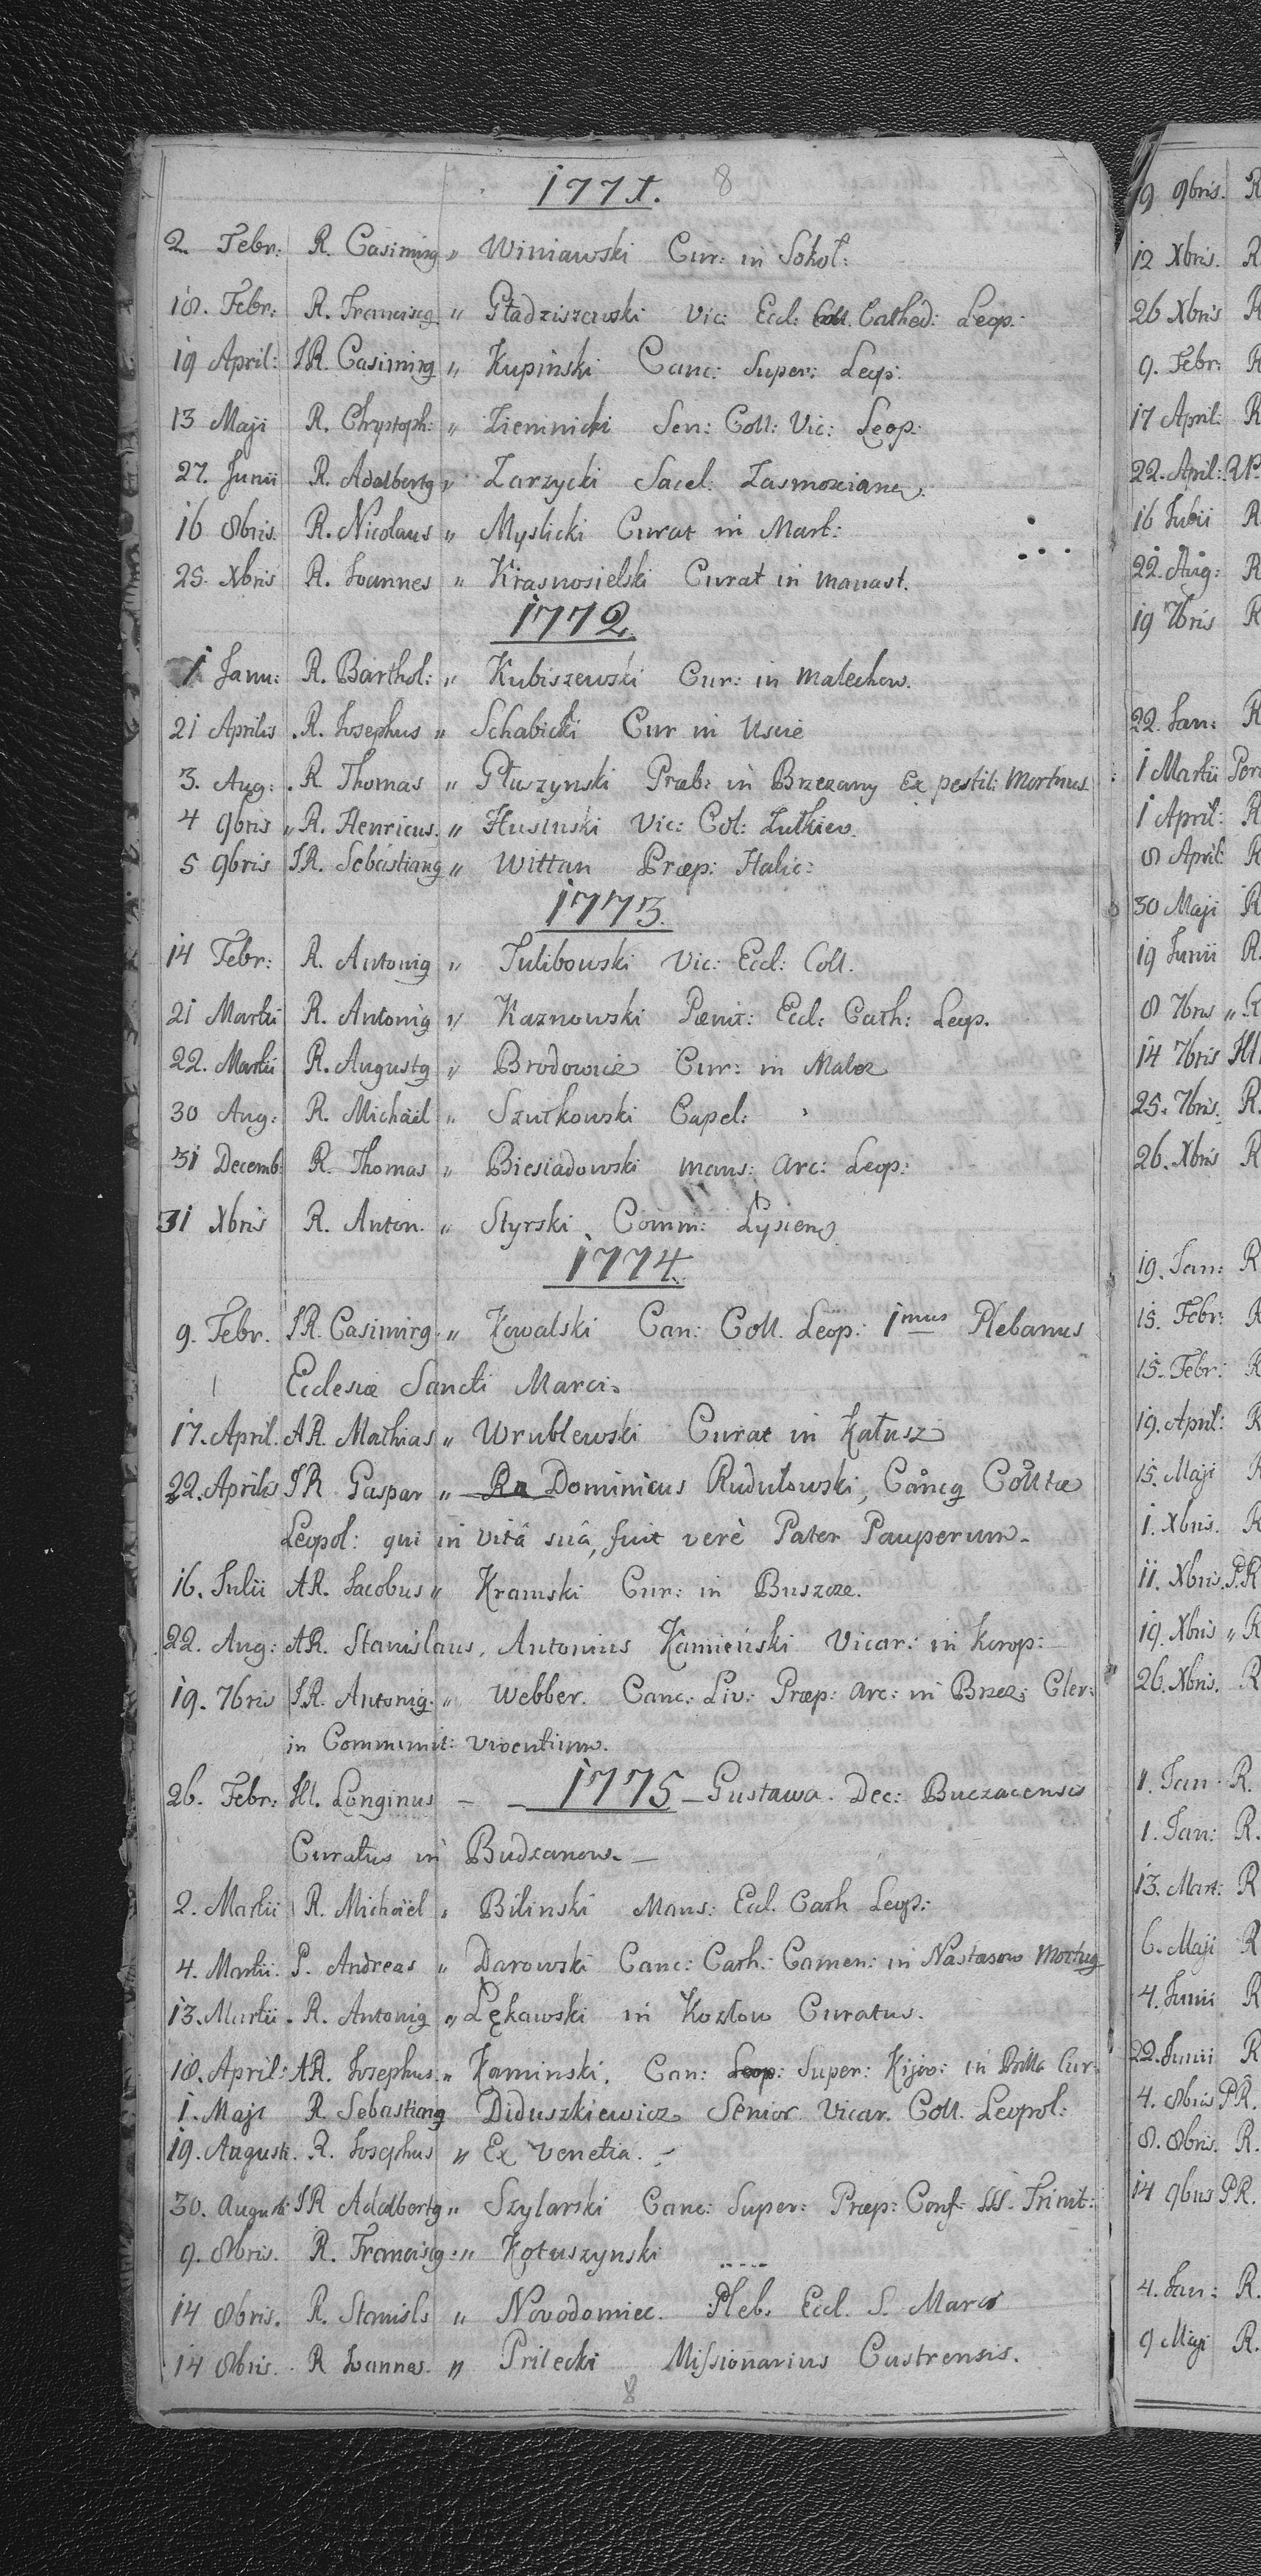 1771. 8
2. Febr: R. Casimirg „ Winiawski Cur: in Sokol:
18. Febr: R. Francisg „ Gładziszewski Vic: Eccl: Cathed: Leop:
19 April: IR. Casimirg „ Kupiński Canc: Super: Leop:
13 Maji R. Chrystoph: „ Zieminicki Sen: Coll: Vic: Leop:
27. Junii R. Adalbertg „ Zarzycki Sacel:
16 8bris. R. Nicolaus „ Myslicki Curat in Mart:
25. Xbris R. Ioannes „ Krasnosielski Curat in manast.
1772.
1 Janu: R. Barthol: „ Kubiszewski Cur: in Malechow.
21 Aprilis R. Iosephus „ Schabicki Cur in Uscie
3. Aug: R Thomas „ Głuszynski Præb: in Brzezany Ex pestil: Mortuus
4 9bris „ R. Henricus. „ Vic: Col: Zułkiew.
5 9bris IR. Sebastiang „ Wittan Præp: Halic:
1773.
14 Febr: R. Antonig „ Tulibowski Vic: Eccl: Coll.
21 Martii R. Antonig „ Kaznowski Pænit: Eccl: Cath: Leop.
22. Martii R. Augustg „ Brodowicz Cur: in
30 Aug: R. Michaël „ Szułkowski Capel:
31 Decemb: R. Thomas „ Biesiadowski mans: arc: Leop:
31 Xbris R. Anton. „ Styrski Comm: Lysien
1774.
9. Febr. IR. Casimirg „ Kowalski Can: Coll. Leop: 1mus Plebanus
Ecclesiæ Sancti Marci.
17. April. AR. Mathias „ Wrublewski Curat in Kałusz
22. Aprilis IR Gaspar „ Dominicus Rudułowski, Cancg Colltæ
Leopol: qui in vitâ suâ, fuit verè Pater Pauperum.
16. Iulii AR. Iacobus „ Kramski Cur: in Buszcze.
22. Aug: AR. Stanislaus. Antonius Kamieński Vicar: in Korop:
19. 7bris IR. Antonig. „ Webber. Canc: Liv: Præp: arc: in Brzez: Cler:
in Communit: viventium.
26. Febr: Ill. Longinus – – 1775 – Gustawa. Dec: Buczacensis
Curatus in Budzanow. –
2. Martii R. Michaël „ Bilinski Mans: Eccl. Cath Leop:
4. Martii. P. Andreas „ Darowski Canc: Cath: Camen: in Nastasow Mortug
13. Martii. R. Antonig „ Lękawski in Kozłow Curatus.
18. April: AR. Iosephus. „ Kaminski. Can: Leop: Super: Kijov: in Cur:
1. Maji R. Sebastiang Diduszkiewicz Senior Vicar. Coll. Leopol:
19. Augusti. R. Iosephus „ Ex Venetia.
30. Augusti IR Adalbertg „ Szylarski Canc: Super: Præp: Conf: SSS. Trinit:
9. 8bris. R. Francisg: „ Kotuszynski ....
14 8bris. R. Stanisls „ Novodomiec. Pleb. Eccl. S. Marci
14 8bris. R Ioannes. „ Prilecki Missionarius Castrensis.
8
19 9bris. R
12 Xbris. R
26 Xbris R
9. Febr: R
17 April: R
22. April:
16 Iulii R
22. Aug: R
19 7bris R
22. Ian: R
1 Martii
1 April: R
8 April: R
30 Maji R
19 Iunii R.
8 7bris „ R
14 7bris Ill
25. 7bris. R.
26. Xbris R
19. Ian: R
15. Febr: R
15. Febr: R
19. April: R
15. Maji R
1. Xbris. R
11. Xbris. P.R
19. Xbris „ R
26. Xbris. R
1. Ian. R.
1. Ian: R.
13. Mart: R
6. Maji R
4. Iunii R
22. Iunii R
4. 8bris PR.
8. 8bris. R.
14 9bris PR.
4. Ian: R.
9 Maji R.